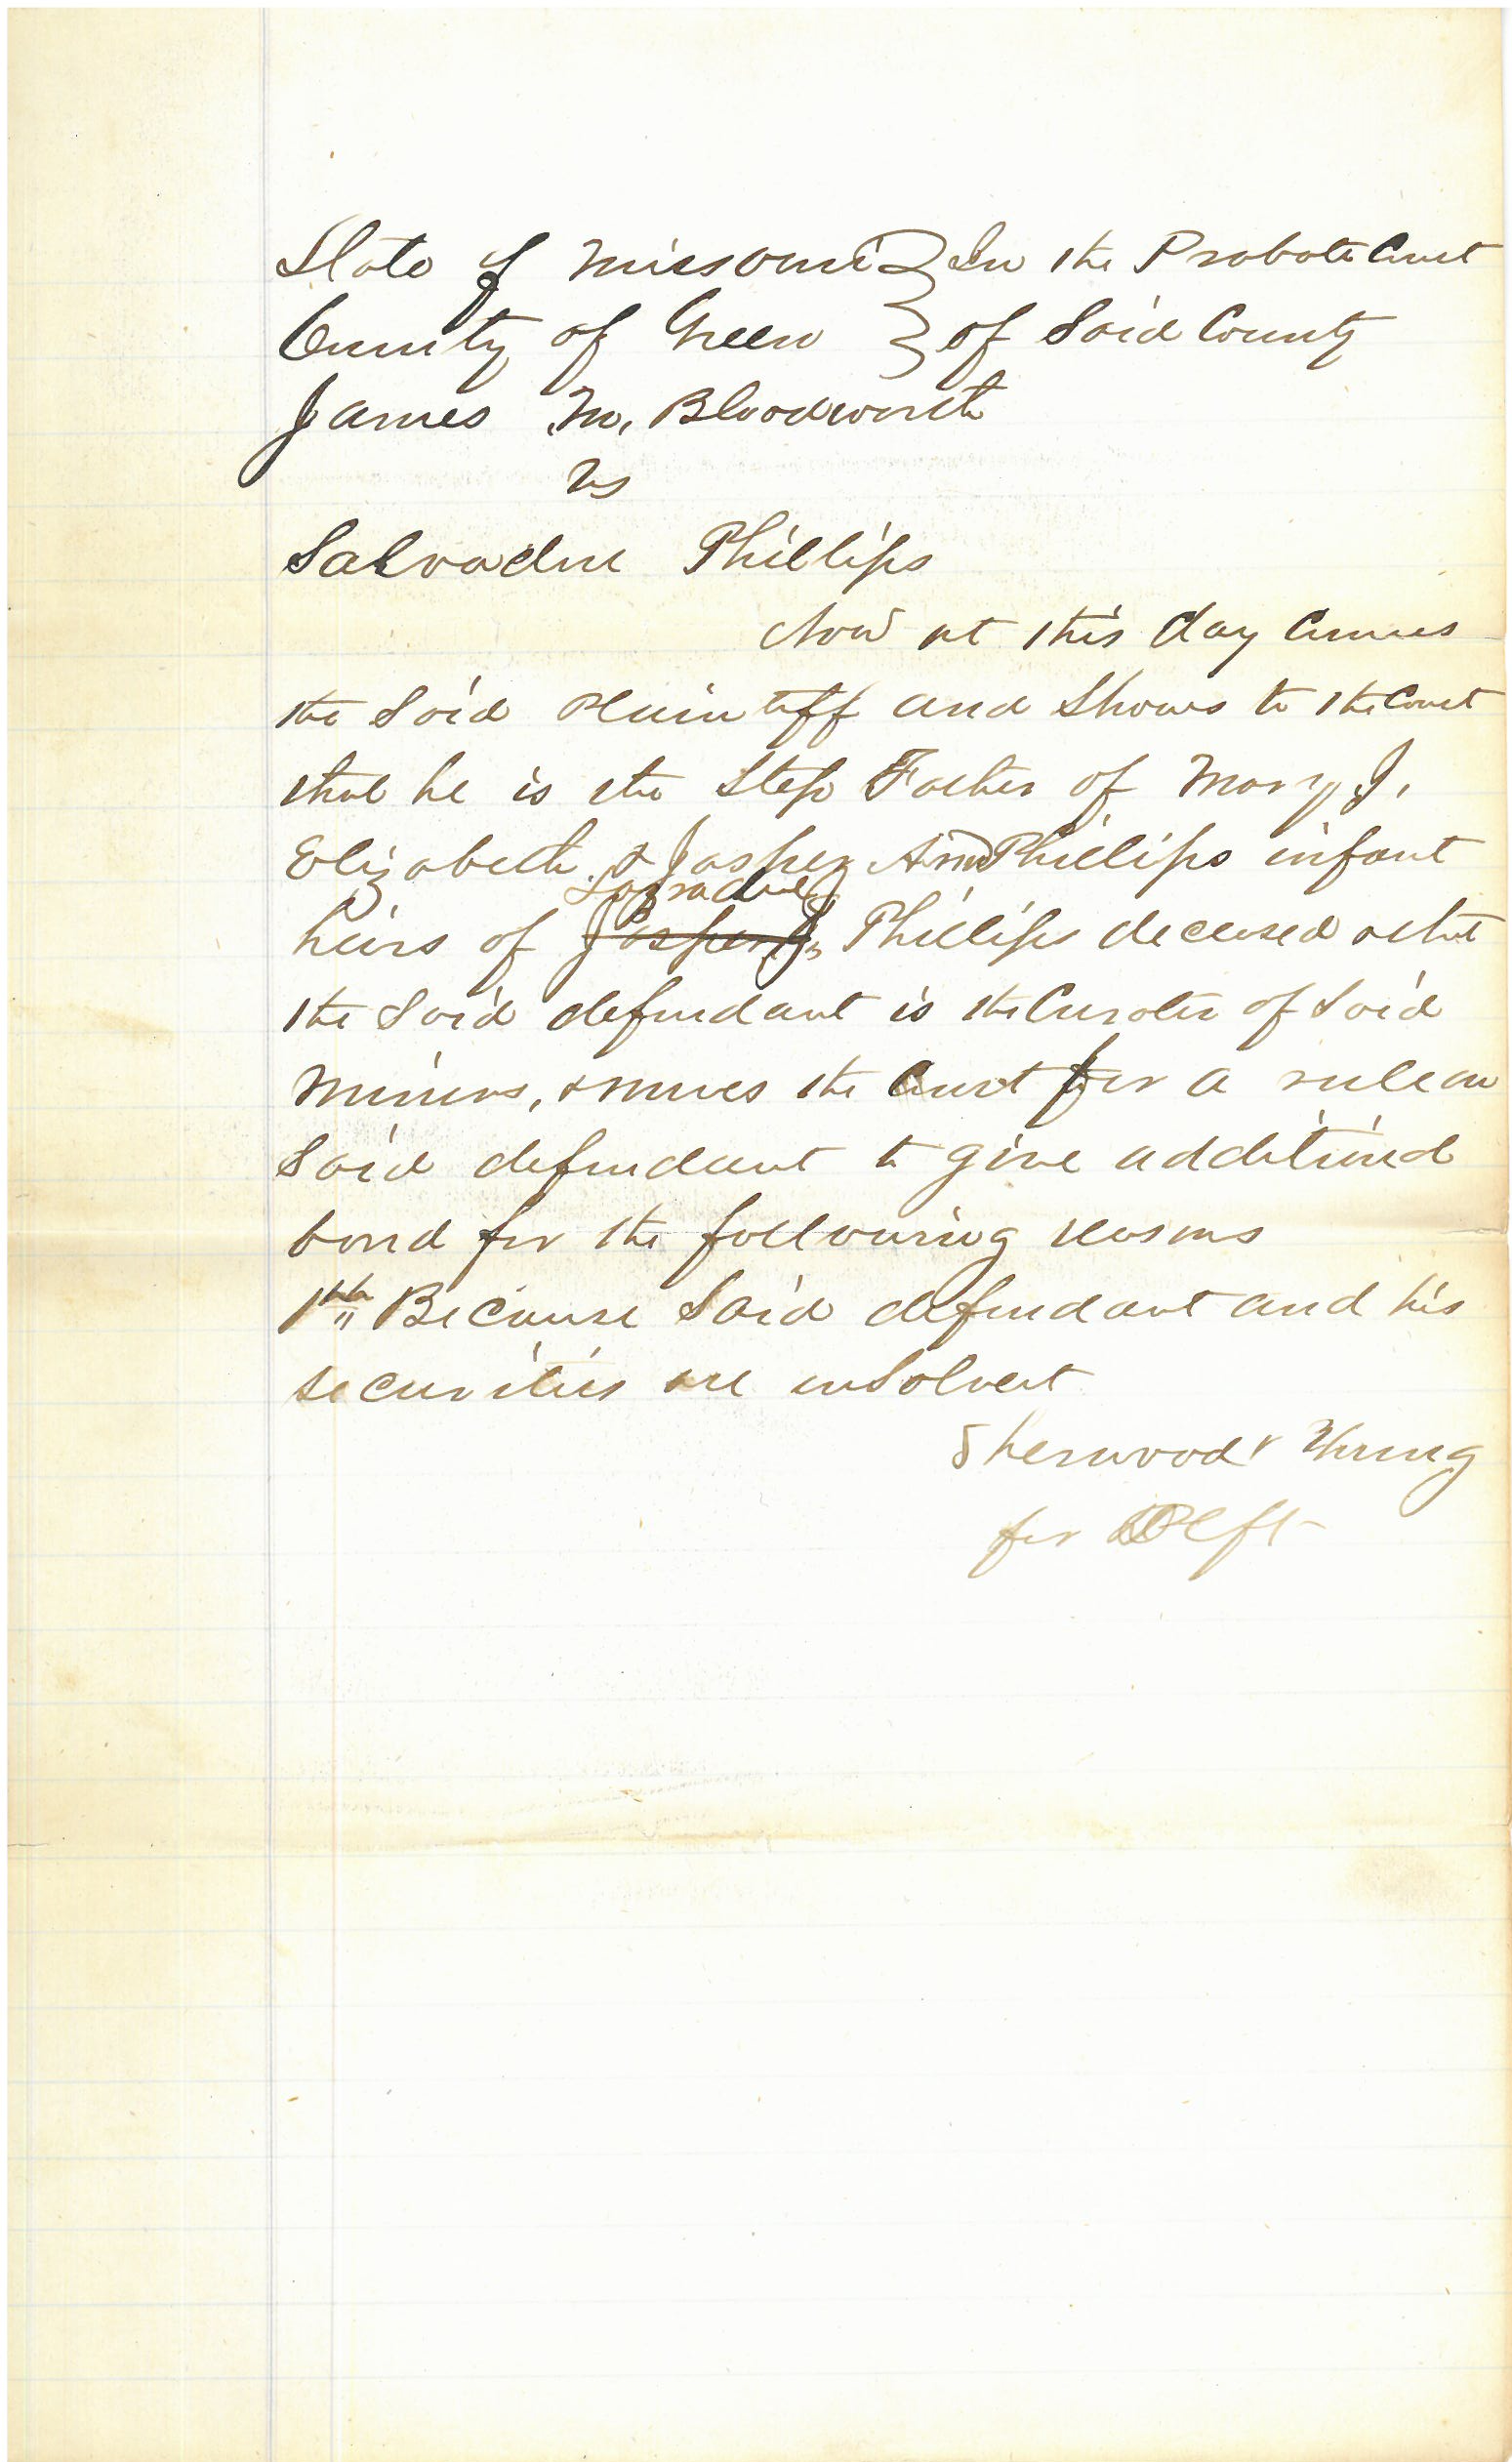 State of Missouri } In the Probate Court
County of Green } of Said County
James M. Bloodworth
vs
Salvadore Phillips
Now at this day Comes
the Said Plaintiff and Shows to the Court
that he is the Step Father of Mary J,
Elizabeth. & Jasper Ann Phillips infant
heirs of Jasper J. Phillips deceased & that
the Said defendant is the Curator of Said
Minors, & moves the Court for a rule on
Said defendant to give additional
bond for the following reasons
1th Because Said defendant and his
securities are insolvent
Sherwood & Young
for Plft